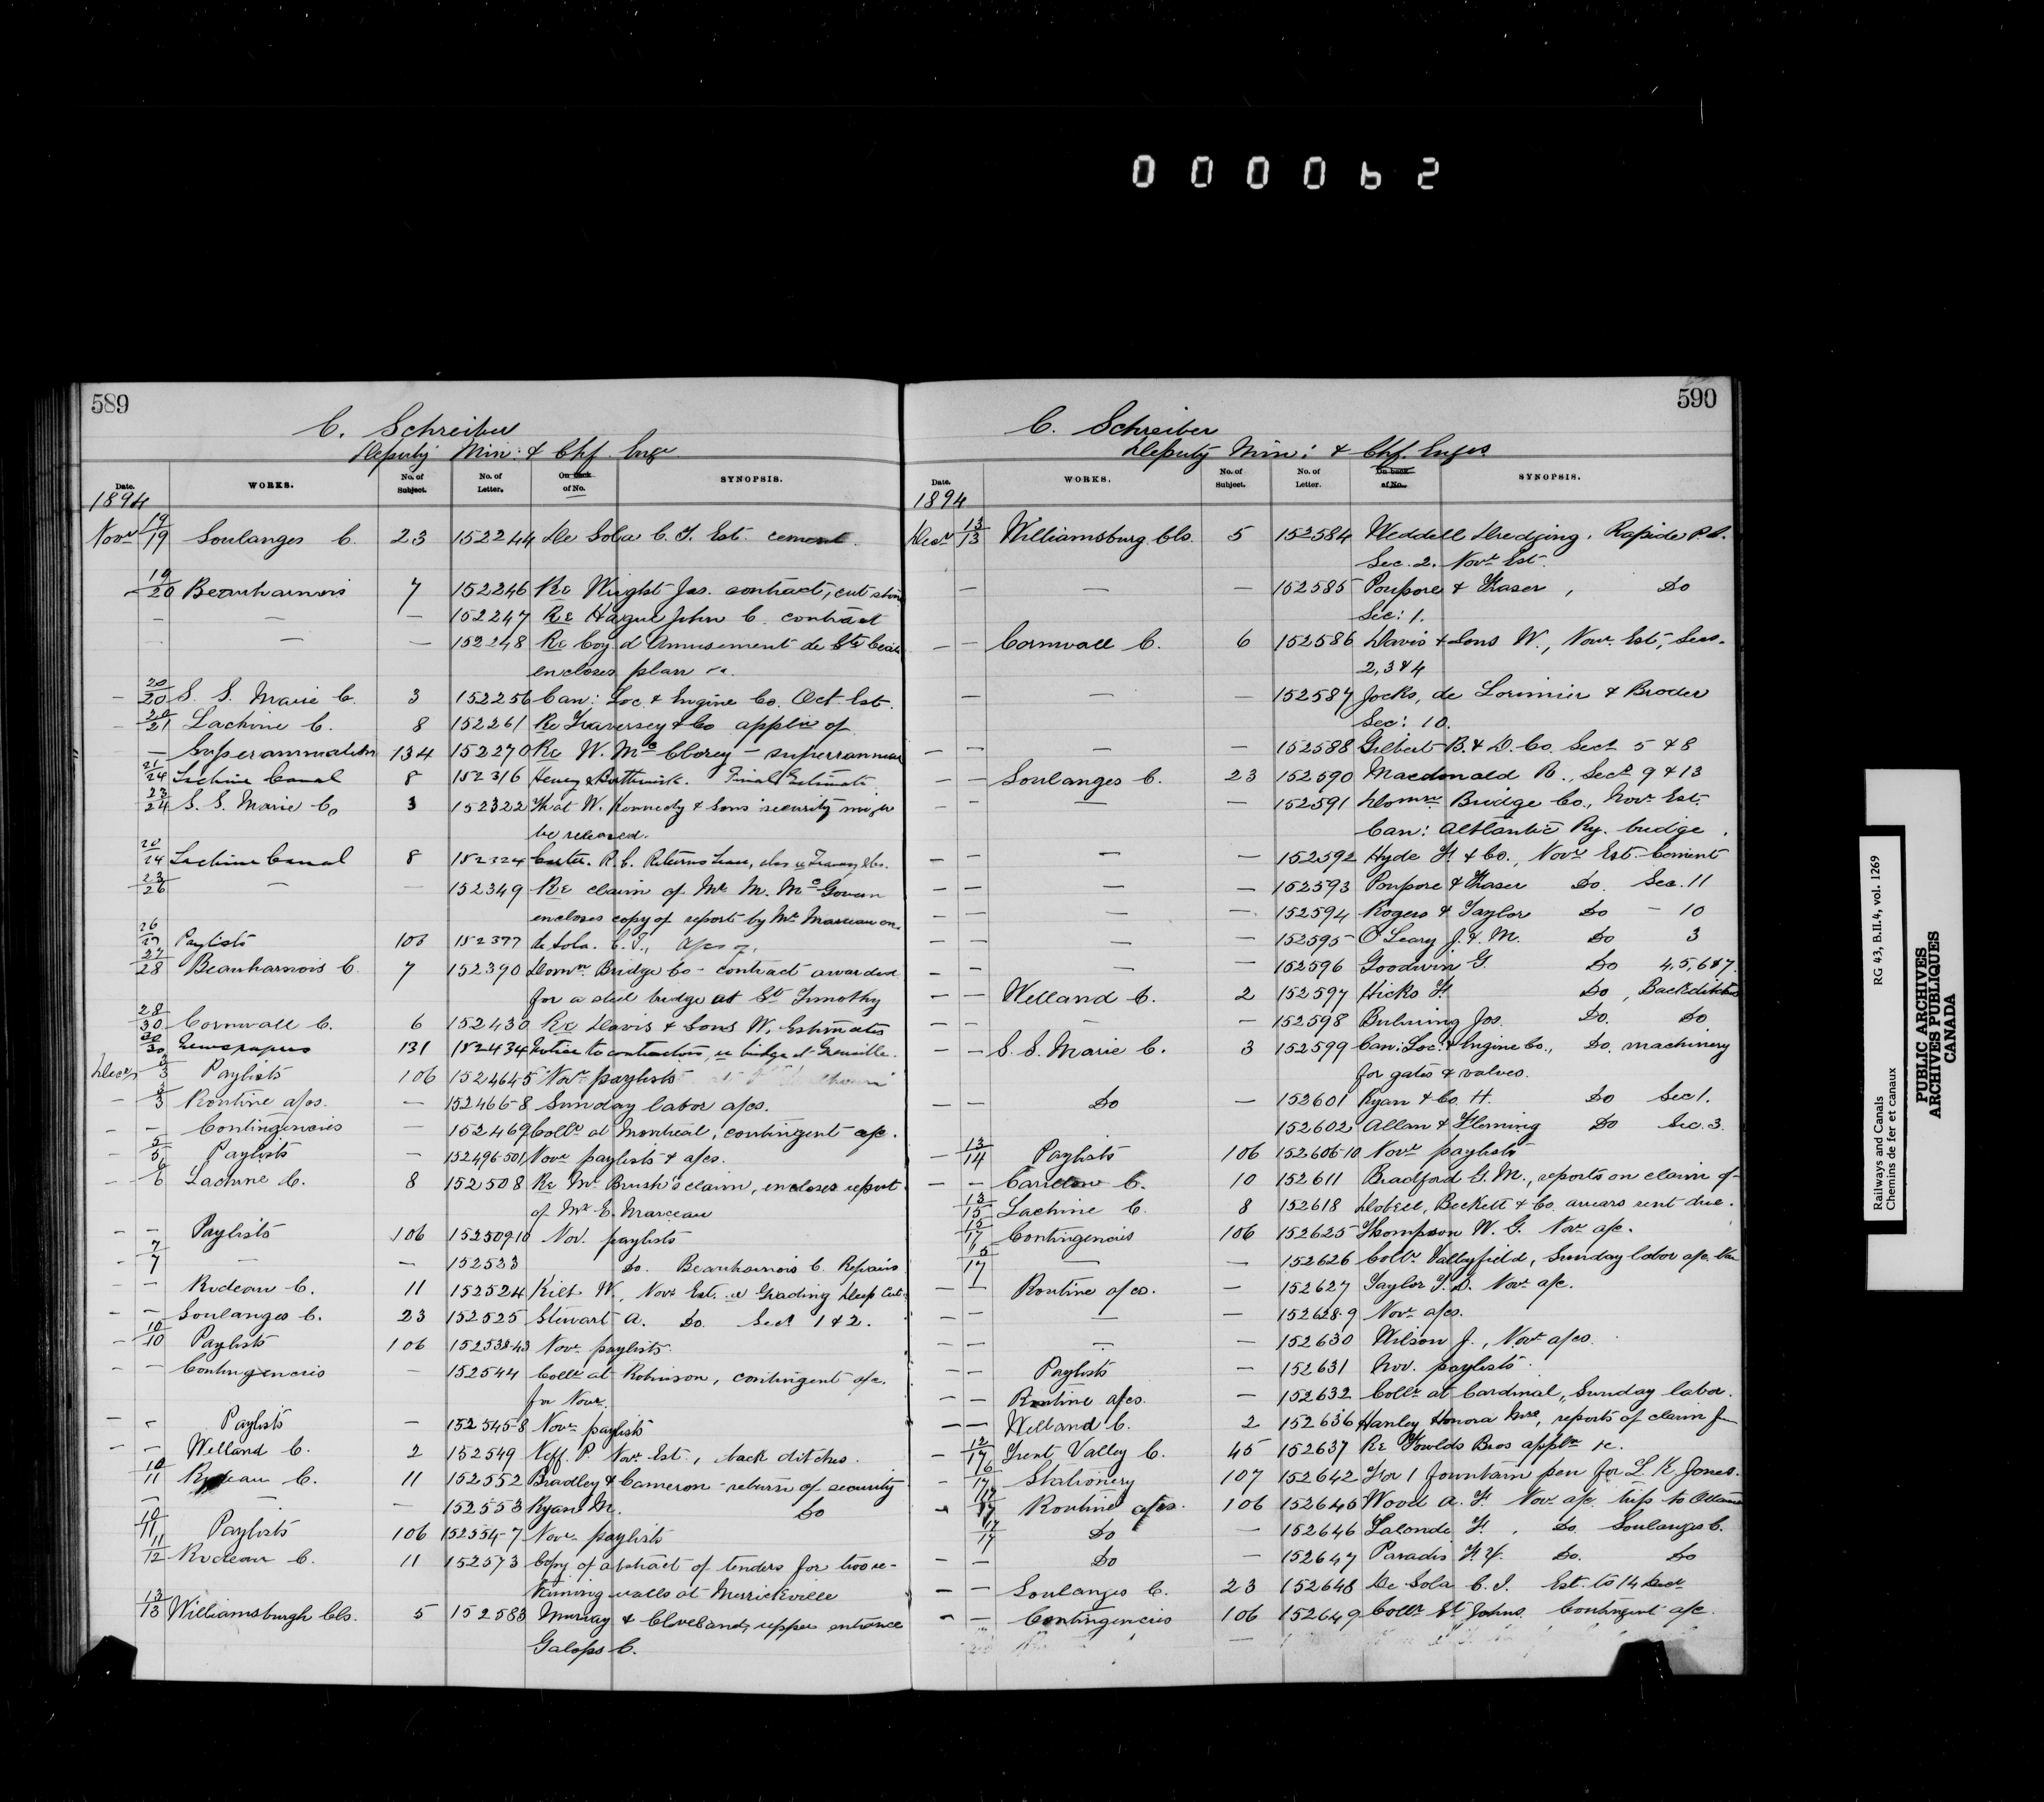 000062
589
C. Schreiber
Deputy Min: & Chf. Engr
Date. WORKS. No. of Subject. No. of Letter. On back of No. SYNOPSIS.
1894
Novr 19/19 Soulanges C. 23 152244 De Sola C. I. Est. cement.
19/20 Beauharnois 7 152246 Re Wright Jas. contract, cut stone
— — 152247 Re Hague John C. contract
— — 152248 Re Coy d'Amusement de Ste
encloses plan
— 20/20 S. S. Marie C. 3 152256 Can: Loc. & Engine Co. Oct. Est.
20/21 Lachine C. 8 152261 Re Traversey & Co applin of
— Superannuation 134 152270 Re W. McClorey — superannuation
21/24 Lachine Canal 8 152316 Henry & Borthwick. Final Estimate
23/24 S. S. Marie C. 3 152322 That W. Kennedy & Sons security may
be released.
20/24 Lachine Canal 8 152324 R. C. Returns
23/26 — — 152349 Re claim of Mr M. McGowan
encloses copy of report by Mr Marceau on.
26/27 Paylists 106 152377 de Sola. C. I., a/cs of.
27/28 Beauharnois C. 7 152390 Domn Bridge Co — contract awarded
for a steel bridge at St Timothy
28/30 Cornwall C. 6 152430 Re Davis & Sons W. Estimates
30/30 Newspapers 131 152434 Notice to contractors, re bridge at Grenville.
Decr 3/3 Paylists 106 152464-5 Novr paylists
— 3/3 Routine a/cs. — 152466-8 Sunday labor a/cs.
— — Contingencies — 152469 Collr at Montreal, contingent a/c.
— 5/5 Paylists — 152496-501 Novr paylists & a/cs.
— 6/6 Lachine C. 8 152508 Re Mr Brush's claim, encloses report
of Mr E. Marceau
— — Paylists 106 152509-10 Nov. paylists
— 7/7 — — 152523 Do. Beauharnois C. Repairs
— — Rideau C. 11 152524 Kilt W., Novr Est. re Grading Deep Cut
— — Soulanges C. 23 152525 Stewart A. Do. Secs 1 & 2.
— 10/10 Paylists 106 152538-43 Novr paylists.
— — Contingencies — 152544 Collr at Robinson, contingent a/c.
for Novr.
— — Paylists — 152545-8 Novr paylists
— — Welland C. 2 152549 Neff P. Novr Est., back ditches.
10/11 Rideau C. 11 152552 Bradley & Cameron — return of security
— — — 152553 Ryan M. Do
10/11 Paylists 106 152554-7 Novr paylists
11/12 Rideau C. 11 152573 Copy of abstract of tenders for two re-
taining walls at Merrickville
13/13 Williamsburgh Cls. 5 152583 Murray & Cleveland, upper entrance
Galops C.
590
C. Schreiber
Deputy Min: & Chf. Engr
Date. WORKS. No. of Subject. No. of Letter. On back of No. SYNOPSIS.
1894
Decr 13/13 Williamsburg Cls. 5 152584 Weddell Dredging. Rapide P.
Sec. 2. Novr Est.
— — — 152585 Poupore & Fraser, Do
Sec: 1.
— — Cornwall C. 6 152586 Davis & Sons W., Novr Est, Secs.
2, 3 & 4
— — — 152587 Jocks, de Lorimier & Broder
Sec: 10.
— — — — 152588 Gilbert B. & D. Co. Secs 5 & 8
— — Soulanges C. 23 152590 Macdonald R., Secs 9 & 13
— — — — 152591 Domn Bridge Co., Novr Est.
Can: Altlantic Ry. bridge.
— — — — 152592 Hyde F. & Co., Novr Est. Cement
— — — — 152593 Poupore & Fraser Do. Sec. 11
— — — — 152594 Rogers & Taylor Do — 10
— — — — 152595 O'Leary J. & M. Do 3
— — — — 152596 Goodwin G. Do 4, 5, 6 & 7.
— — Welland C. 2 152597 Hicks F. Do, Backditches
— — — — 152598 Do. Do
— — S. S. Marie C. 3 152599 Can: Loc. & Engine Co., Do. machinery
for gates & valves.
— — Do — 152601 Ryan & Co. H. Do Sec 1.
152602 Allan & Fleming Do Sec. 3.
— 13/14 Paylists 106 152606-10 Novr paylists
— — Carillon C. 10 152611 Bradford G. M., reports on claim of
— 13/15 Lachine C. 8 152618 Dobell, Beckett & Co. arrears rent due.
15/17 Contingencies 106 152625 Thompson W. G. Novr a/c.
15/17 — — 152626 Collr Valleyfield, Sunday labor a/c.
— — Routine a/cs. — 152627 Taylor T. D. Novr a/c.
— — — 152628-9 Novr a/cs.
— — — — 152630 Wilson J., Novr a/cs.
— — Paylists — 152631 Nov. paylists.
— — Routine a/cs. — 152632 Collr at Cardinal, Sunday labor.
— — Welland C. 2 152636 Hanley Honora Mrs, reports of claim
— 12/17 Trent Valley C. 45 152637 Re Fowlds Bros appln re.
— 16/17 Stationery 107 152642 For 1 fountain pen for L. K. Jones.
— 17/17 Routine a/cs. 106 152645 Wood A. F. Novr a/c, trip to Ottawa
17/17 Do — 152646 Lalonde F. Do. Soulanges C.
— — Do — 152647 Paradis F. X. Do. Do
— — Soulanges C. 23 152648 De Sola C. I. Est. to 14 Decr
— — Contingencies 106 152649 Collr St Johns. Contingent a/c.
Railways and Canals RG 43, B.II.4, vol. 1269
Chemins de fer et canaux
PUBLIC ARCHIVES
ARCHIVES PUBLIQUES
CANADA